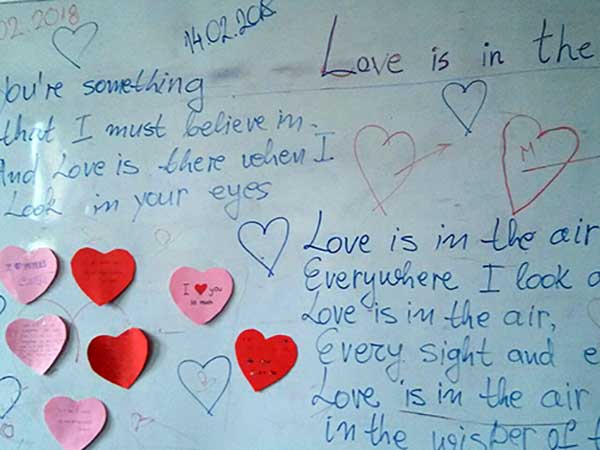 02.2018
14.02.2018
Love is in the
You're something
that I must believe in.
And Love is there when I
Look in your eyes
M
Love is in the air
Everywhere I look
Love is in the air,
Every sight and e
Love is in the air
in the wisper of t
I ❤ you
so much